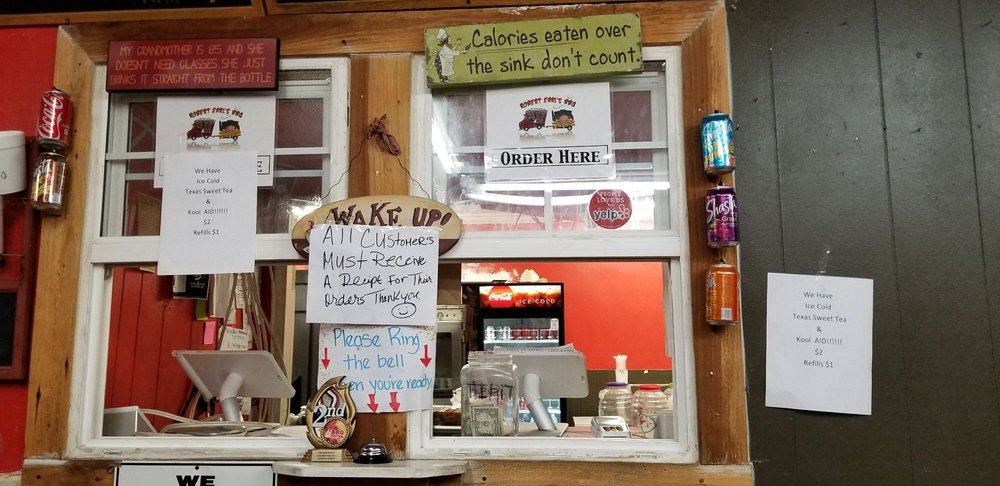 MY GRANDMOTHER IS 85 AND SHE
DOESN'T NEED GLASSES. SHE JUST
DRINKS IT STRAIGHT FROM THE BOTTLE
Calories eaten over
the sink don't count.
ROBERT EARL'S BBQ
ROBERT EARL'S BBQ
ORDER HERE
We Have
Ice Cold
Texas Sweet Tea
&
Kool AID!!!!!!
$2
Refills $1
PEOPLE
LOVE US
yelp
WAKE UP!
All Customer's
Must Receive
A Reciept For Their
Orders Thank you
Please Ring
the bell
you're ready
Coca-Cola
ICE COLD
TIP IT
2nd
BBQ
Coca-Cola
Shasta
WE
We Have
Ice Cold
Texas Sweet Tea
&
Kool AID!!!!!!
$2
Refills $1